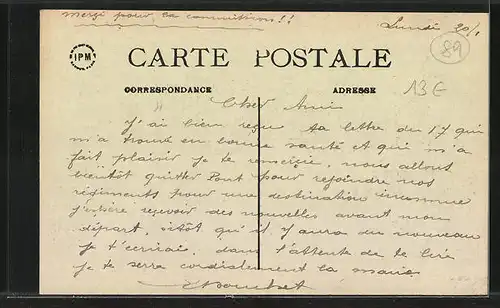 merci pour la commission!!
Lundi 20/1
89
IPM
CARTE POSTALE
CORRESPONDANCE ADRESSE
13€
Cher Ami
J'ai bien reçu ta lettre du 17 qui
m'a trouvé en bonne santé et qui m'a
fait plaisir je te remercie, nous allons
bientôt quitter Pont pour rejoindre nos
régiments pour une destination inconnue
j'espère recevoir des nouvelles avant mon
départ, sitôt qu'il y aura du nouveau
je t'écrirai, dans l'attente de te lire
je te serre cordialement la main